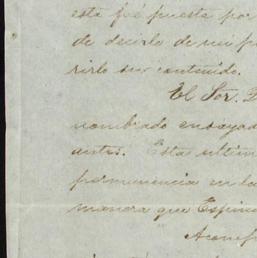 esta fué puesta por
de decirlo de mi p
rirlo su contenido.
El Sor. D
nombrado ensayad
antes. Esta ultim
permanencia en la
manera que Espino
Acomp